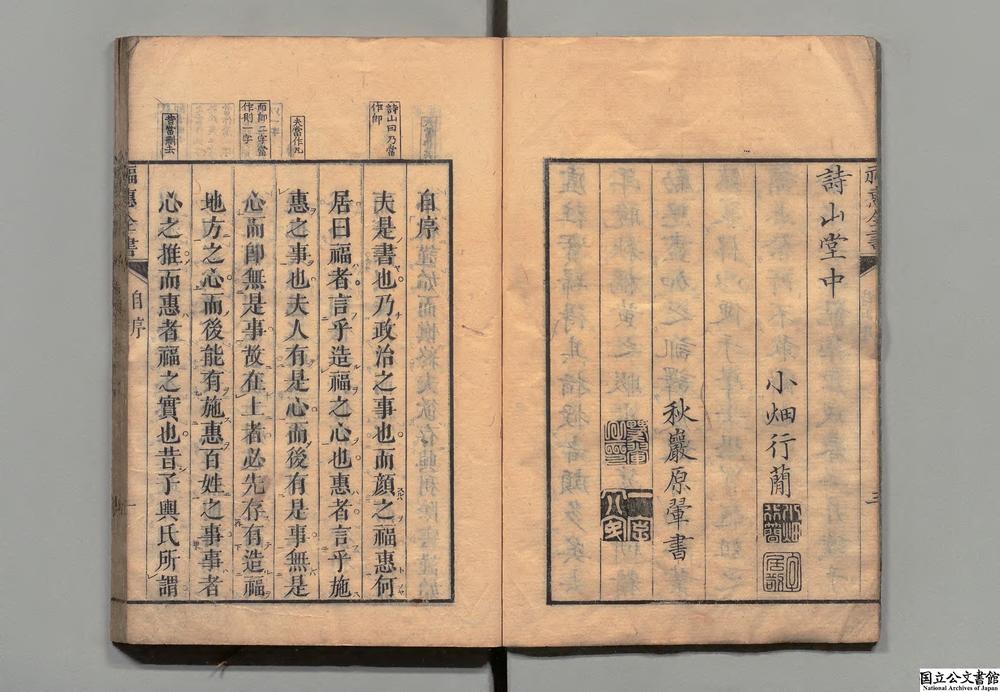 詩山堂中
小畑行蕳
小畑行簡
秋巖原翬書
詩山曰乃當
作卽
夫當作凡
而卽二字當
作則一字
昔當刪去
自序
夫是書也乃政治之事也而顏之福惠何
居曰福者言乎造福之心也惠者言乎施
惠之事也夫人有是心而後有是事無是
心而卽無是事故在上者必先存有造福
地方之心而後能有施惠百姓之事事者
心之推而惠者福之實也昔子輿氏所謂
福惠全書
自序
一
国立公文書館
National Archives of Japan